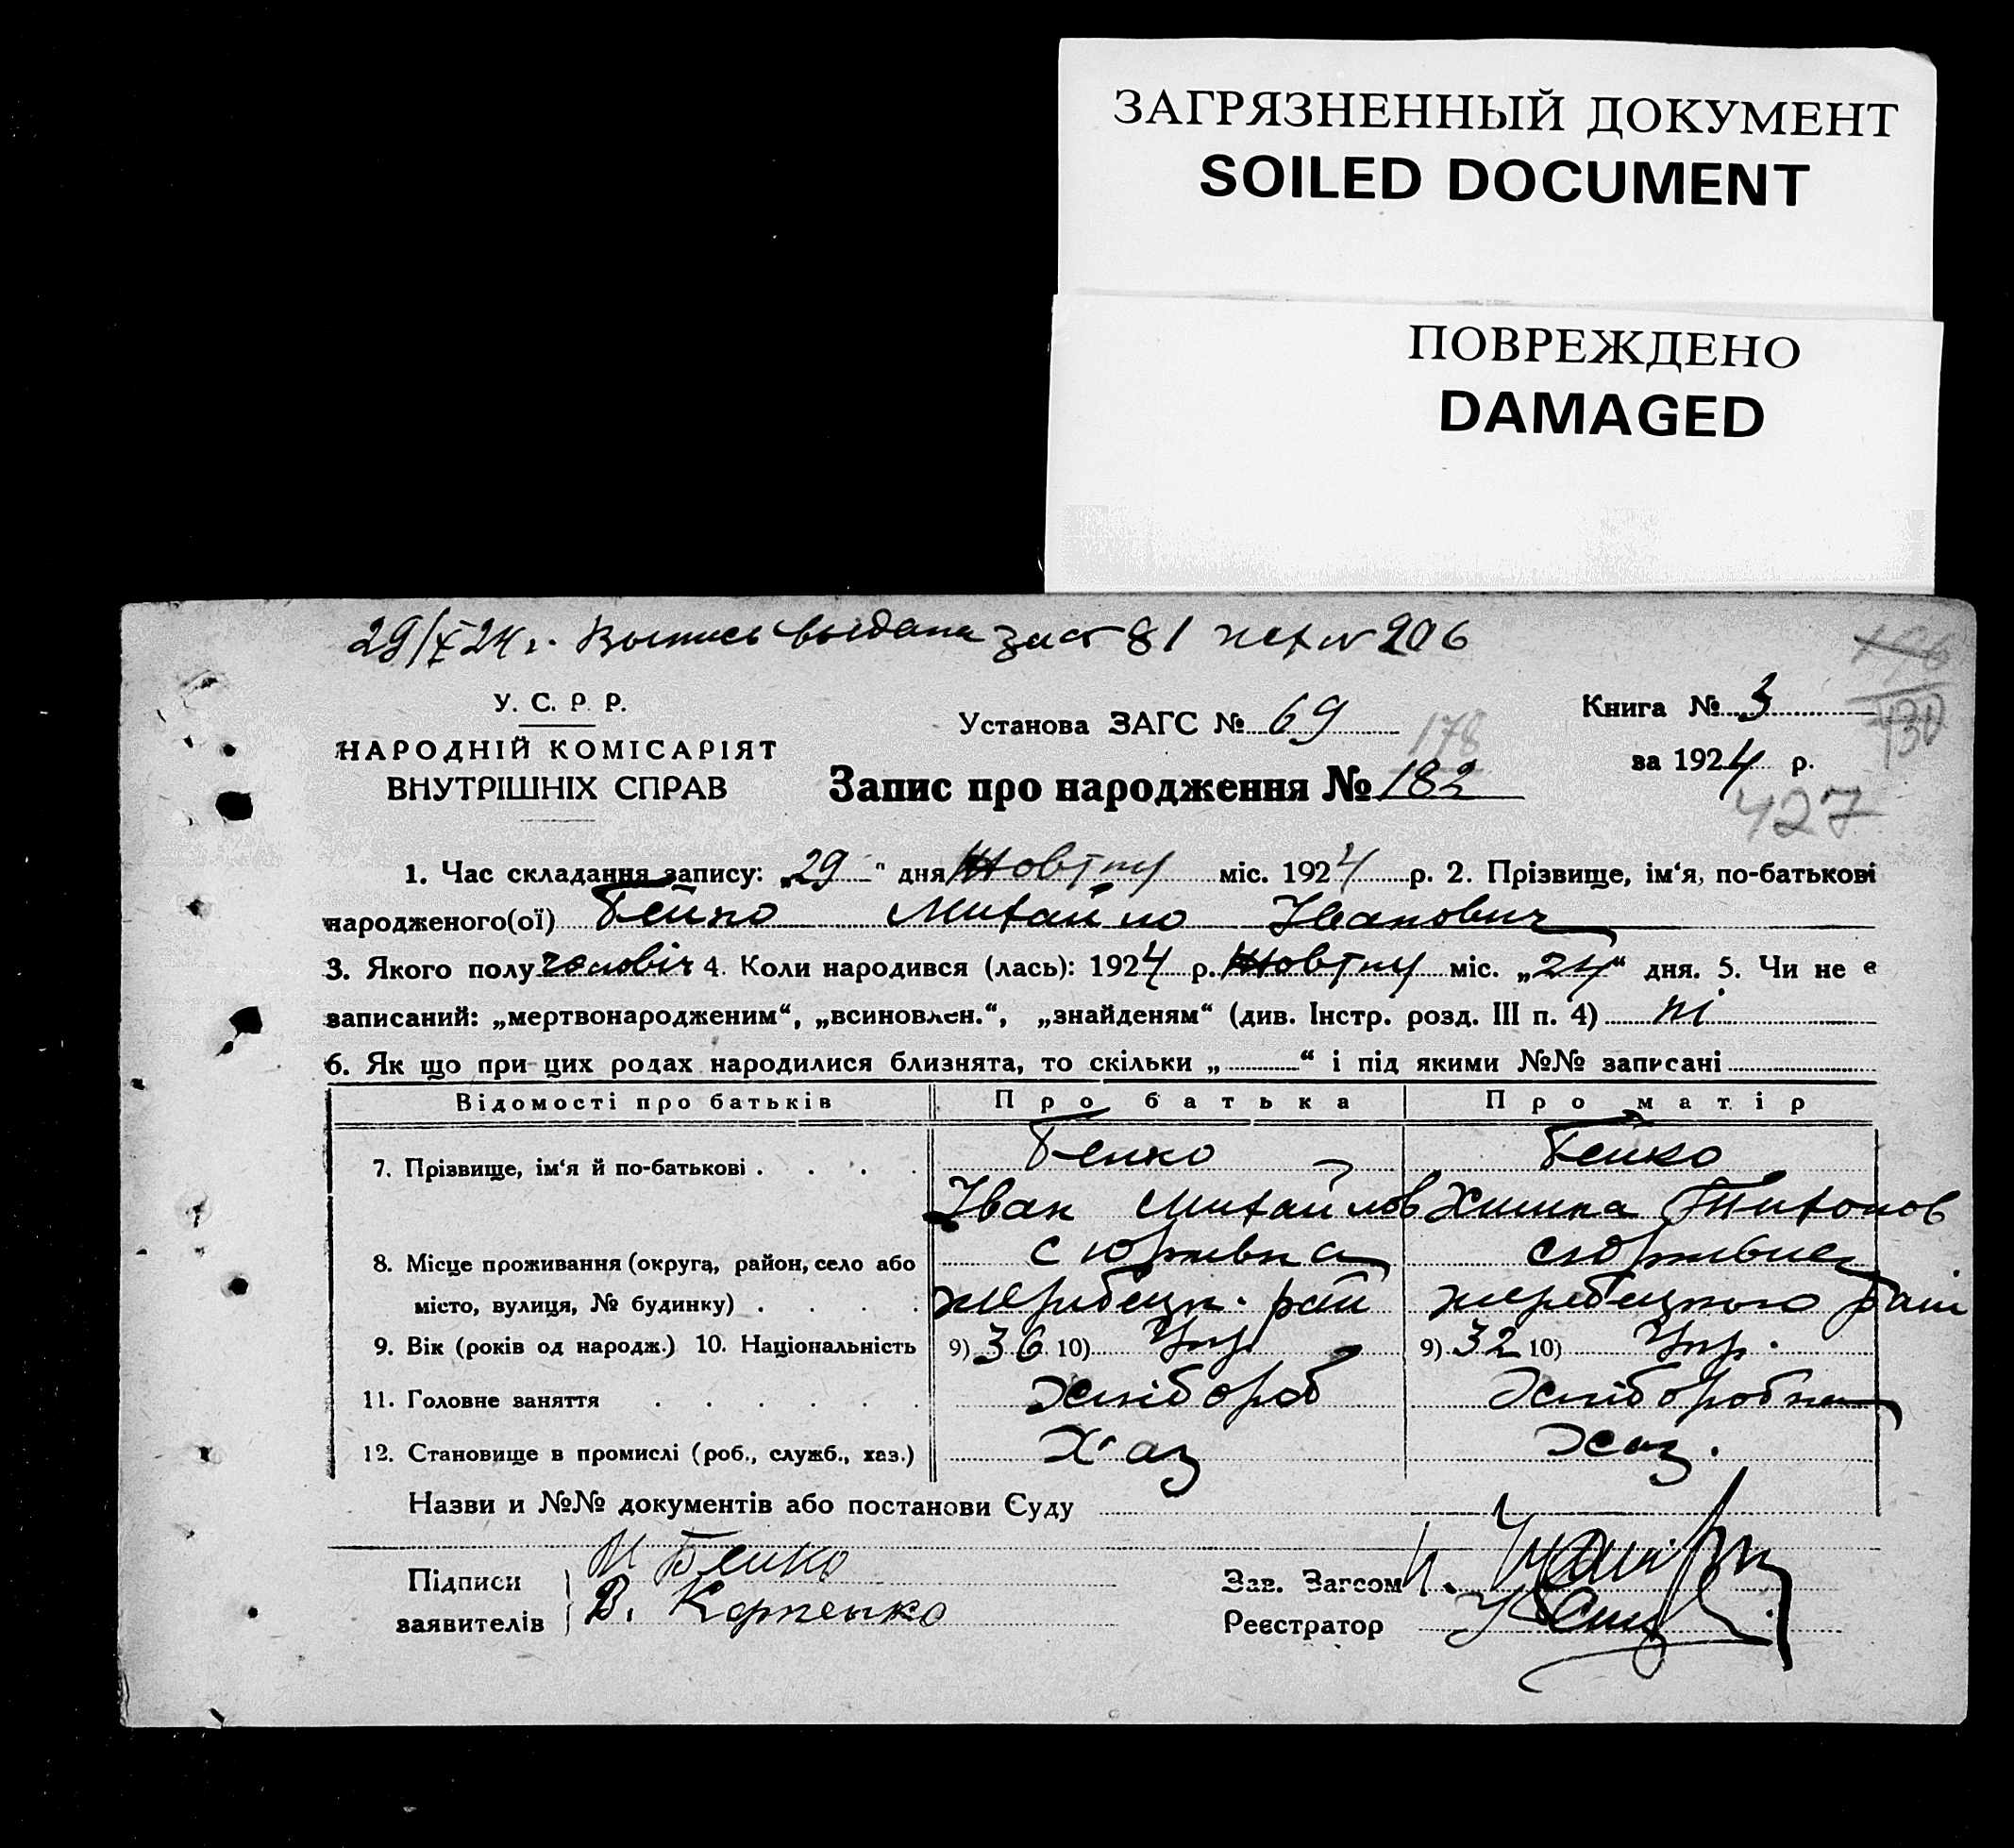 ЗАГРЯЗНЕННЫЙ ДОКУМЕНТ
SOILED DOCUMENT
ПОВРЕЖДЕНО
DAMAGED
29/X 24 г. Выпись выдана за № 81 206
У. С. Р. Р.
НАРОДНІЙ КОМІСАРІЯТ
ВНУТРІШНІХ СПРАВ
Установа ЗАГС № 69
Книга № 3
130
178
за 1924 р.
Запис про народження № 182
427
1. Час складання запису: „29" дня Жовтня міс. 1924 р. 2. Прізвище, ім'я, по-батькові
народженого(ої) Бенко Михайло Іванович
3. Якого полу чоловіч 4. Коли народився (лась): 1924 р. Жовтня міс. „24" дня. 5. Чи не є
записаний: „мертвонародженим“, „всиновлен.“, „знайденям“ (див. Інстр. розд. III п. 4) ні
6. Як що при цих родах народилися близнята, то скільки „ “ і під якими №№ записані
Відомості про батьків Про батька Про матір
7. Прізвище, ім'я й по-батькові . . . . Бенко Бенко
Іван Михайлов Химка Тихонов
8. Місце проживання (округа, район, село або с Юрківка с Юрківка
місто, вулиця, № будинку) . . . . жеребецьк. рай жеребецького рай
9. Вік (років од народж.) 10. Національність 9) 36 10) Укр 9) 32 10) Укр.
11. Головне заняття . . . . . . Хлібороб Хліборобка
12. Становище в промислі (роб., служб., хаз.) Хаз Хаз.
Назви и №№ документів або постанови Суду
Підписи И Бенко
заявителів В. Карпенко
Зав. Загсом
Реєстратор